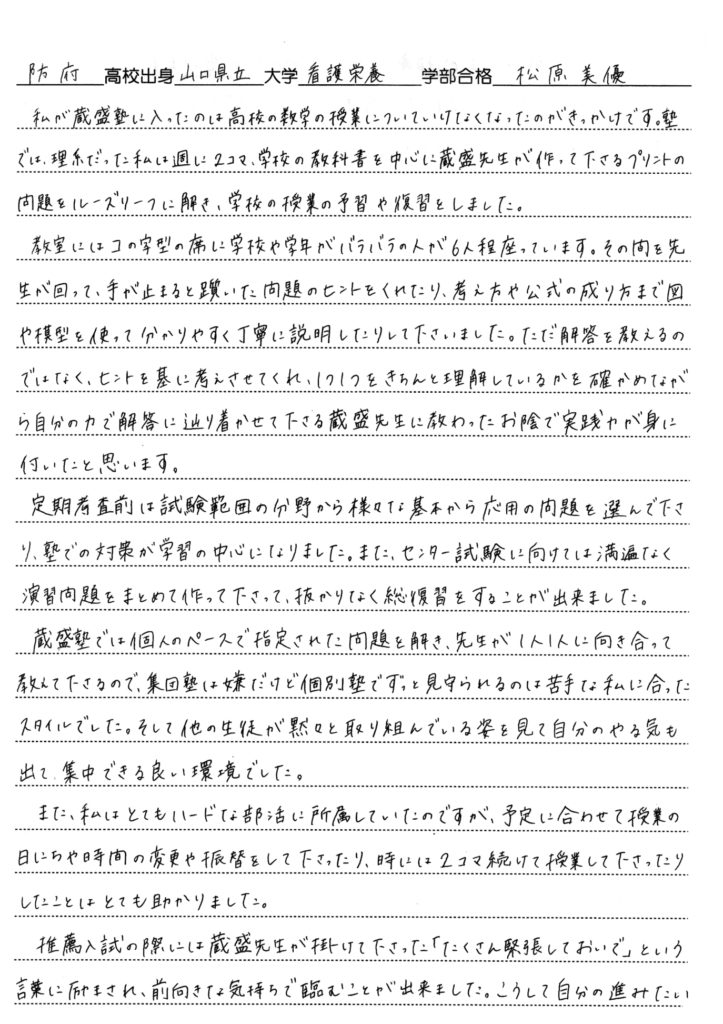 防府 高校出身 山口県立 大学 看護栄養 学部合格 松原美優
私が蔵盛塾に入ったのは高校の数学の授業についていけなくなったのがきっかけです。塾
では、理系だった私は週に2コマ、学校の教科書を中心に蔵盛先生が作って下さるプリントの
問題をルーズリーフに解き、学校の授業の予習や復習をしました。
教室にはコの字型の席に学校や学年がバラバラの人が6人程座っています。その間を先
生が回って、手が止まると躓いた問題のヒントをくれたり、考え方や公式の成り方まで図
や模型を使って分かりやすく丁寧に説明したりして下さいました。ただ解答を教えるの
ではなく、ヒントを基に考えさせてくれ、1つ1つをきちんと理解しているかを確かめなが
ら自分の力で解答に辿り着かせて下さる蔵盛先生に教わったお陰で実践力が身に
付いたと思います。
定期考査前は試験範囲の分野から様々な基本から応用の問題を選んで下さ
り、塾での対策が学習の中心になりました。また、センター試験に向けては満遍なく
演習問題をまとめて作って下さって、抜かりなく総復習をすることが出来ました。
蔵盛塾では個人のペースで指定された問題を解き、先生が1人1人に向き合って
教えて下さるので、集団塾は嫌だけど個別塾でずっと見守られるのは苦手な私に合った
スタイルでした。そして他の生徒が黙々と取り組んでいる姿を見て自分のやる気も
出て、集中できる良い環境でした。
また、私はとてもハードな部活に所属していたのですが、予定に合わせて授業の
日にちや時間の変更や振替をして下さったり、時には2コマ続けて授業して下さったり
したことはとても助かりました。
推薦入試の際には蔵盛先生が掛けて下さった「たくさん緊張しておいで」という
言葉に励まされ、前向きな気持ちで臨むことが出来ました。こうして自分の進みたい